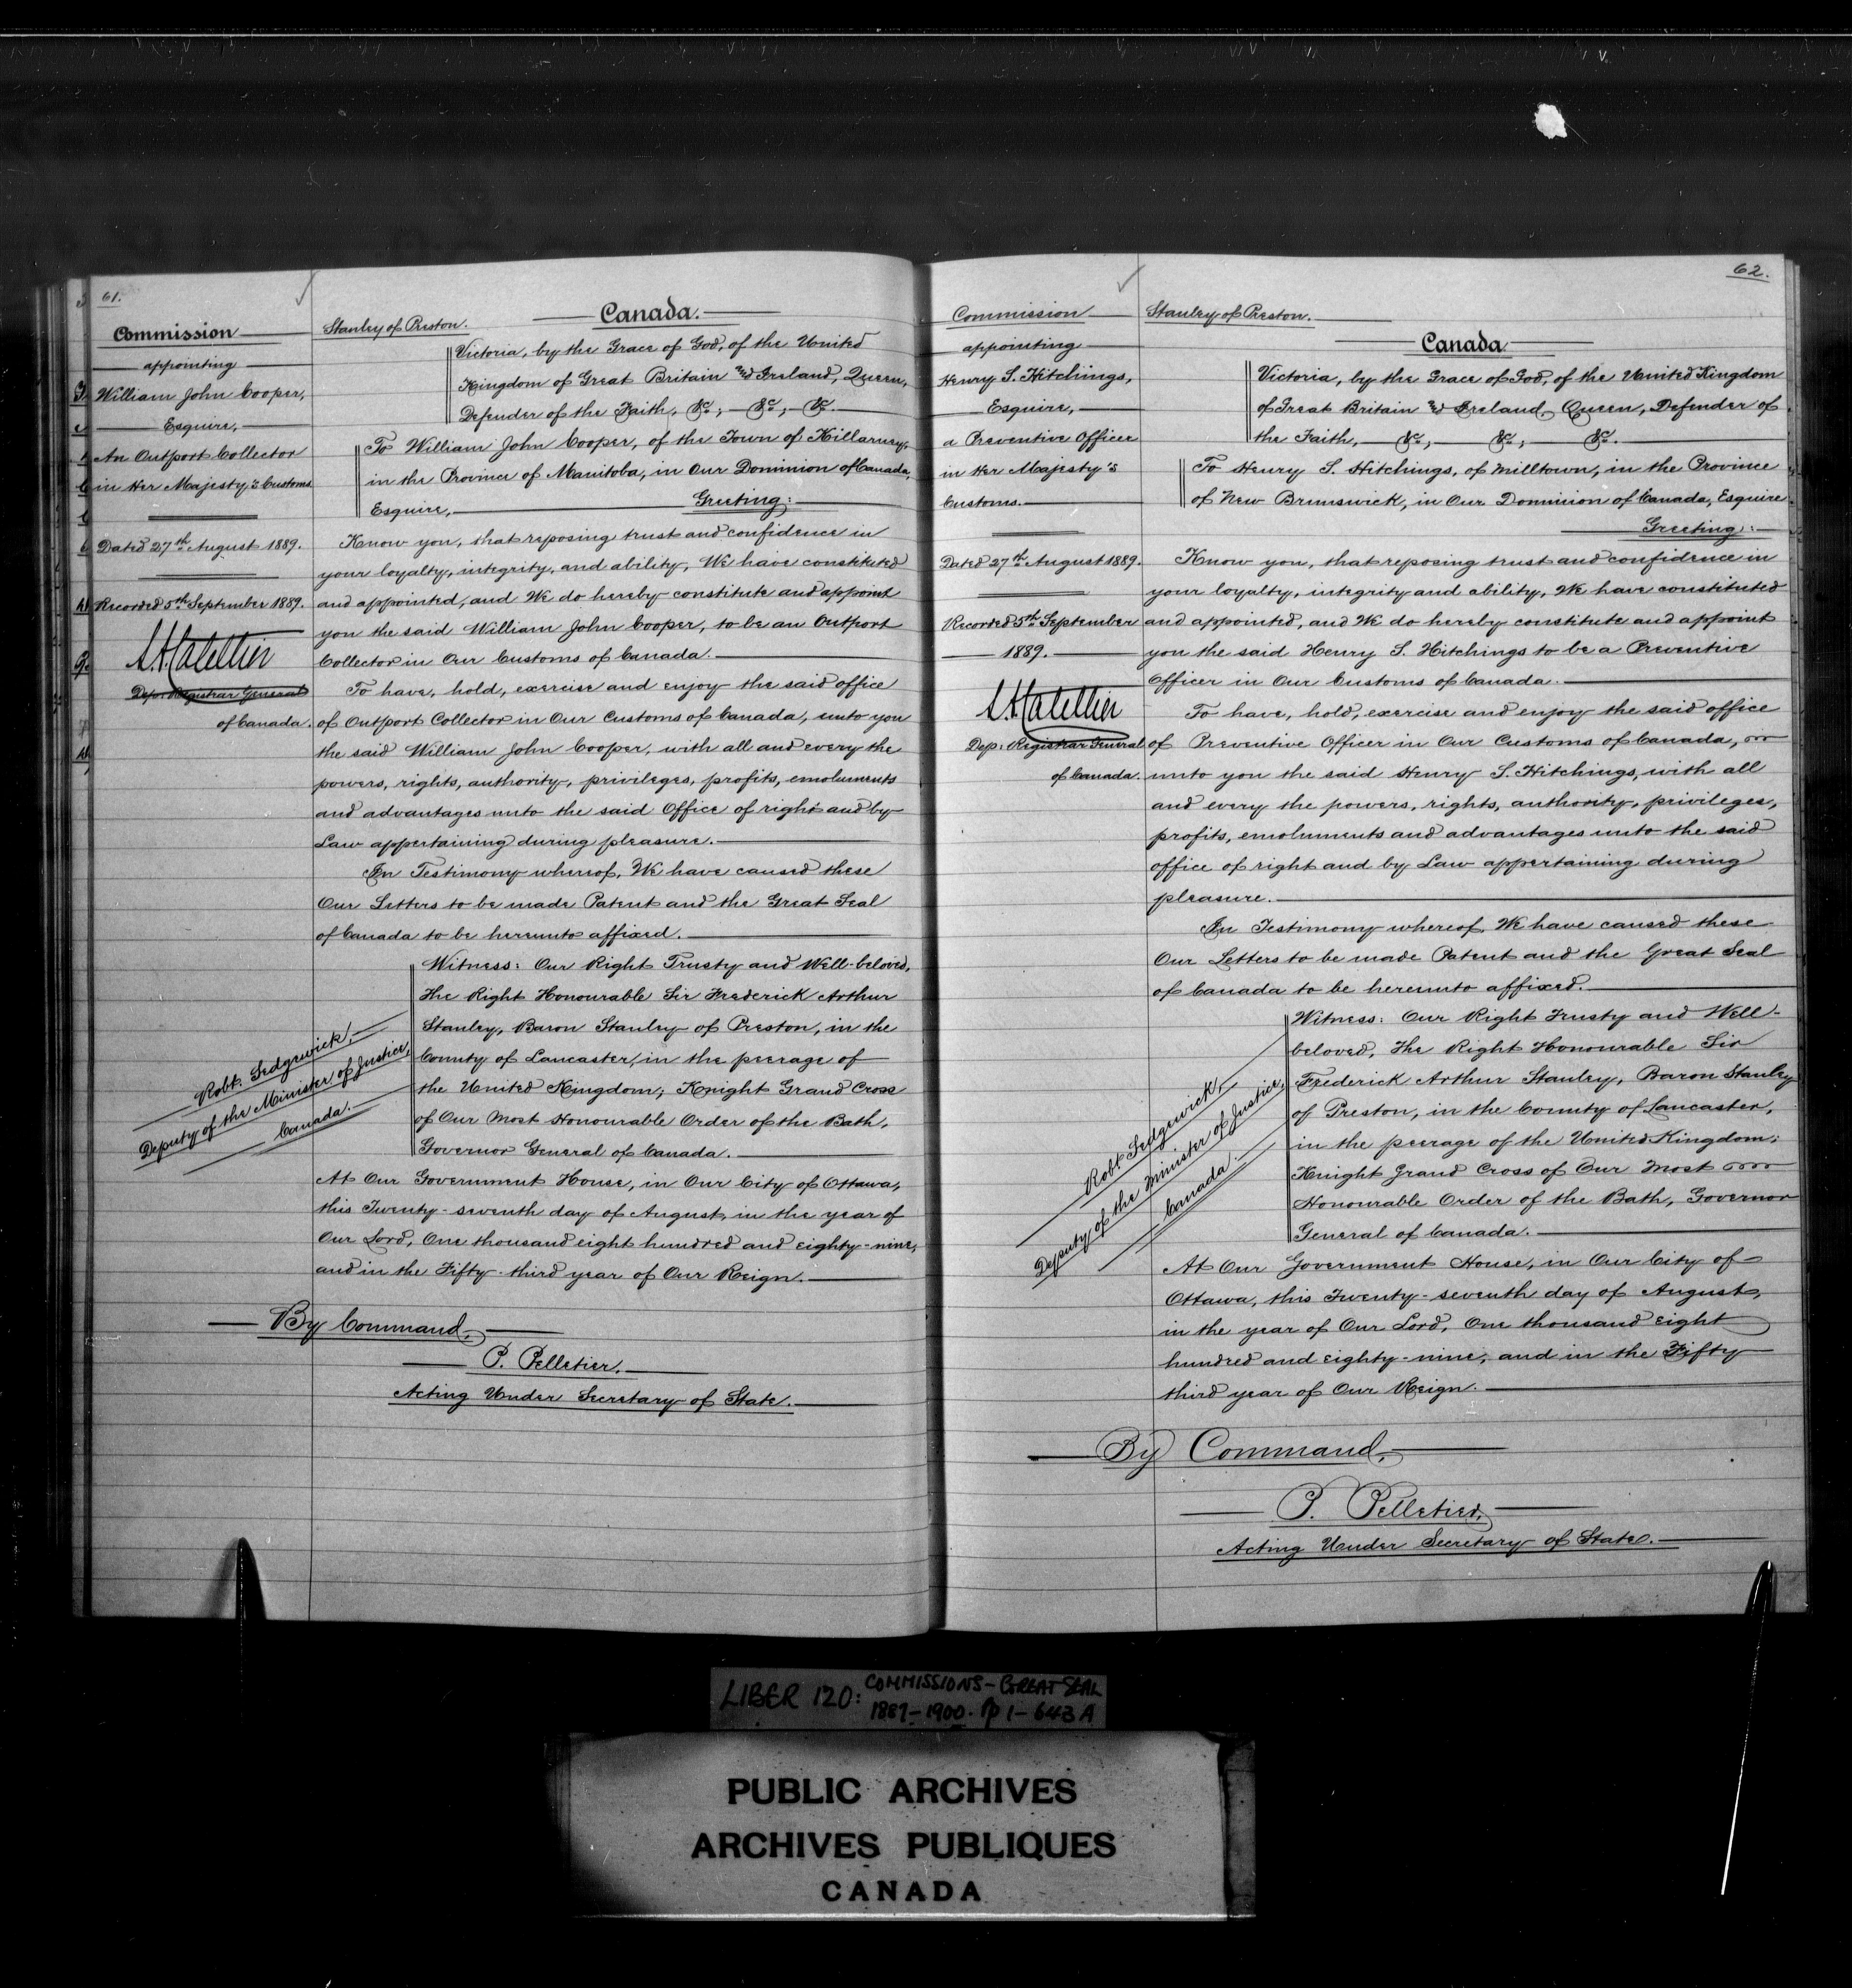 61.
Commission
appointing
William John Cooper,
Esquire,
An Outport Collector
in Her Majesty's Customs
Dated 27th August 1889.
Recorded 5th September 1889.
Dep: Registrar General
of Canada.
Stanley of Preston.
Canada.
Victoria, by the Grace of God, of the United
Kingdom of Great Britain and Ireland, Queen,
Defender of the Faith, &c; &c; &c.
To William John Cooper, of the Town of Killarney,
in the Province of Manitoba, in Our Dominion of Canada,
Esquire, Greeting:
Know you, that reposing trust and confidence in
your loyalty, integrity, and ability, We have constituted
and appointed, and We do hereby constitute and appoint
you the said William John Cooper, to be an Outport
Collector in Our Customs of Canada.
To have, hold, exercise and enjoy the said office
of Outport Collector in Our Customs of Canada, unto you
the said William John Cooper, with all and every the
powers, rights, authority, privileges, profits, emoluments
and advantages unto the said Office of right and by
Law appertaining during pleasure.
In Testimony whereof, We have caused these
Our Letters to be made Patent and the Great Seal
of Canada to be hereunto affixed.
Witness: Our Right Trusty and Well-beloved,
The Right Honourable Sir Frederick Arthur
Stanley, Baron Stanley of Preston, in the
County of Lancaster, in the peerage of
the United Kingdom; Knight Grand Cross
of Our Most Honourable Order of the Bath,
Governor General of Canada.
Robt. Sedgewick,
Deputy of the Minister of Justice,
Canada.
At Our Government House, in Our City of Ottawa,
this Twenty-seventh day of August, in the year of
Our Lord, One thousand eight hundred and eighty-nine,
and in the Fifty-third year of Our Reign.
By Command,
P. Pelletier.
Acting Under Secretary of State.
62.
Commission
appointing
Henry S. Hitchings,
Esquire,
a Preventive Officer
in Her Majesty's
Customs.
Dated 27th August 1889.
Recorded 5th September
1889.
Dep: Registrar General
of Canada.
Stanley of Preston.
Canada
Victoria, by the Grace of God, of the United Kingdom
of Great Britain and Ireland, Queen, Defender of
the Faith, &c; &c; &c.
To Henry S. Hitchings, of Milltown, in the Province
of New Brunswick, in Our Dominion of Canada, Esquire
Greeting:
Know you, that reposing trust and confidence in
your loyalty, integrity and ability, We have constituted
and appointed, and We do hereby constitute and appoint
you the said Henry S. Hitchings to be a Preventive
Officer in Our Customs of Canada.
To have, hold, exercise and enjoy the said office
of Preventive Officer in Our Customs of Canada,
unto you the said Henry S. Hitchings, with all
and every the powers, rights, authority, privileges,
profits, emoluments and advantages unto the said
office of right and by Law appertaining during
pleasure.
In Testimony whereof, We have caused these
Our Letters to be made Patent and the Great Seal
of Canada to be hereunto affixed.
Witness: Our Right Trusty and Well-
beloved, The Right Honourable Sir
Frederick Arthur Stanley, Baron Stanley
of Preston, in the County of Lancaster,
in the peerage of the United Kingdom;
Knight Grand Cross of Our Most
Honourable Order of the Bath, Governor
General of Canada.
Robt Sedgewick,
Deputy of the Minister of Justice,
Canada.
At Our Government House, in Our City of
Ottawa, this Twenty-seventh day of August,
in the year of Our Lord, One thousand eight
hundred and eighty-nine, and in the Fifty
third year of Our Reign.
By Command,
P. Pelletier,
Acting Under Secretary of State.
LIBER 120: COMMISSIONS - GREAT SEAL
1889-1900. pp 1-643A
PUBLIC ARCHIVES
ARCHIVES PUBLIQUES
CANADA